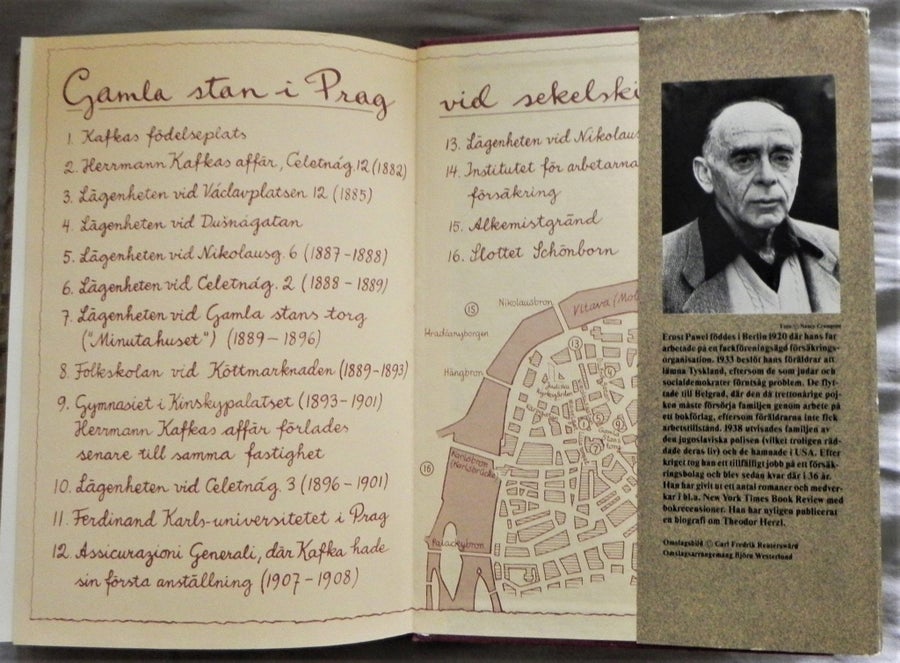 Gamla stan i Prag
1. Kafkas födelseplats
2. Herrmann Kafkas affär, Celetnág. 12 (1882)
3. Lägenheten vid Václavplatsen 12 (1885)
4. Lägenheten vid Dušnágatan
5. Lägenheten vid Nikolausg. 6 (1887-1888)
6. Lägenheten vid Celetnág. 2 (1888-1889)
7. Lägenheten vid Gamla stans torg
("Minutahuset") (1889-1896)
8. Folkskolan vid Köttmarknaden (1889-1893)
9. Gymnasiet i Kinskypalatset (1893-1901)
Herrmann Kafkas affär förlades
senare till samma fastighet
10. Lägenheten vid Celetnág. 3 (1896-1901)
11. Ferdinand Karls-universitetet i Prag
12. Assicurazioni Generali, där Kafka hade
sin första anställning (1907-1908)
vid sekelski
13. Lägenheten vid Nikolaus
14. Institutet för arbetarna
försäkring
15. Alkemistgränd
16. Slottet Schönborn
15
Nikolausbron
Vltava (Mol
Hradčanyborgen
13
Hängbron
16
Karlsbron
(Karlsbrücke)
Palackýbron
Foto © Nancy Crampton
Ernst Pawel föddes i Berlin 1920 där hans far
arbetade på en fackföreningsägd försäkrings-
organisation. 1933 beslöt hans föräldrar att
lämna Tyskland, eftersom de som judar och
socialdemokrater förutsåg problem. De flyt-
tade till Belgrad, där den då trettonårige poj-
ken måste försörja familjen genom arbete på
ett bokförlag, eftersom föräldrarna inte fick
arbetstillstånd. 1938 utvisades familjen av
den jugoslaviska polisen (vilket troligen räd-
dade deras liv) och de hamnade i USA. Efter
kriget tog han ett tillfälligt jobb på ett försäk-
ringsbolag och blev sedan kvar där i 36 år.
Han har givit ut ett antal romaner och medver-
kar i bl.a. New York Times Book Review med
bokrecensioner. Han har nyligen publicerat
en biografi om Theodor Herzl.
Omslagsbild © Carl Fredrik Reuterswärd
Omslagsarrangemang Björn Westerlund